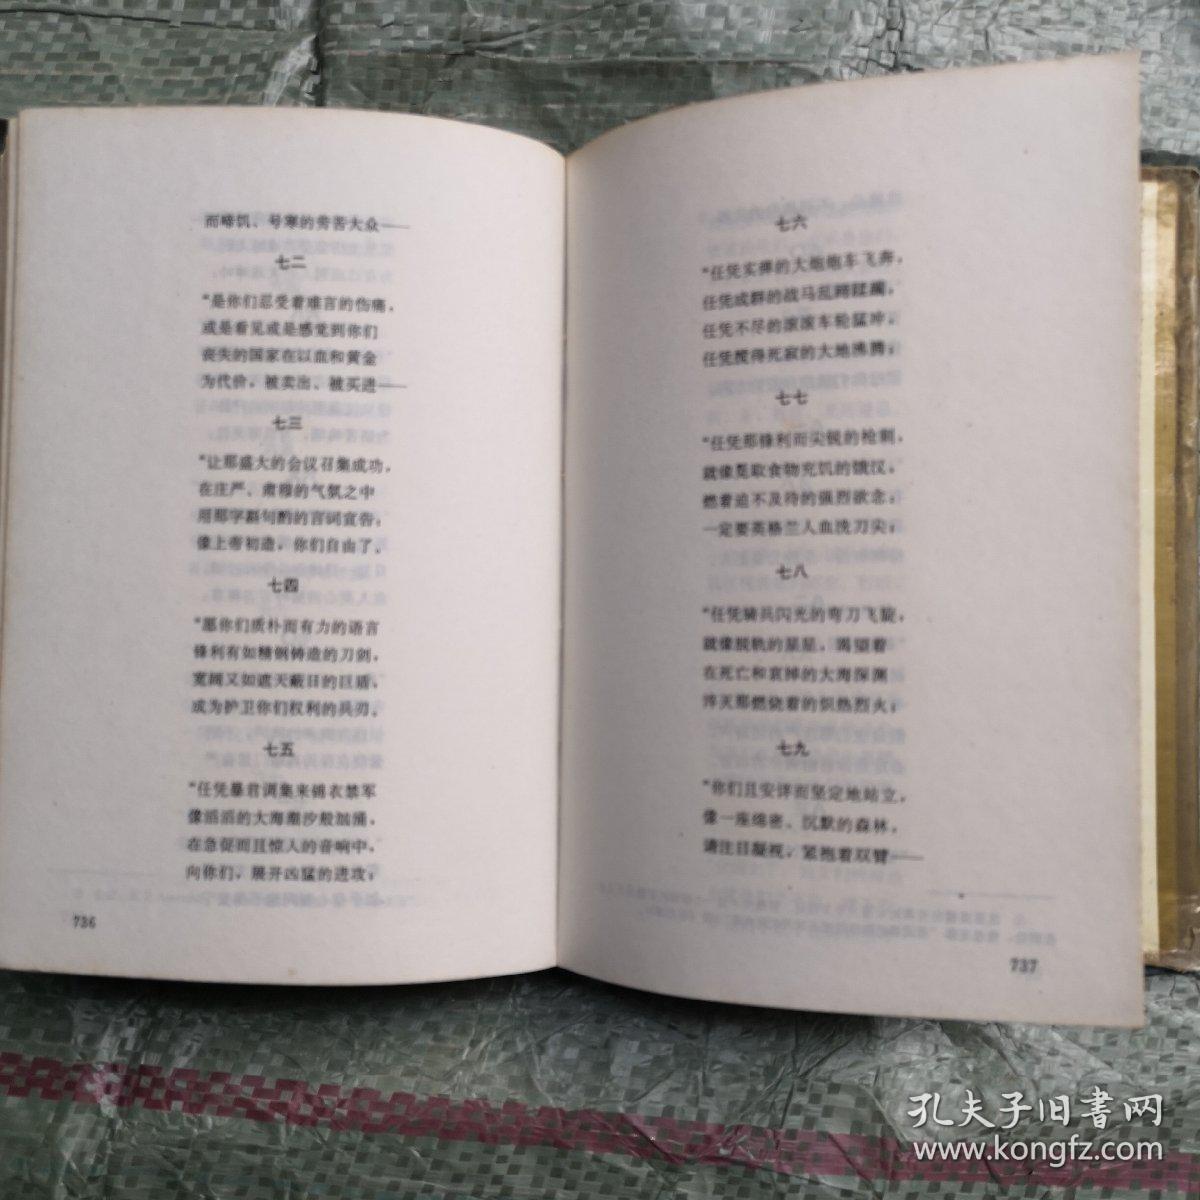 而啼饥、号寒的劳苦大众——
七二
“是你们忍受着难言的伤痛,
或是看见或是感觉到你们
丧失的国家在以血和黄金
为代价,被卖出、被买进——
七三
“让那盛大的会议召集成功,
在庄严、肃穆的气氛之中
用那字斟句酌的言词宣告,
像上帝初造,你们自由了。
七四
“愿你们质朴而有力的语言
锋利有如精钢铸造的刀剑,
宽阔又如遮天蔽日的巨盾,
成为护卫你们权利的兵刃。
七五
“任凭暴君调集来锦衣禁军
像滔滔的大海潮汐般汹涌,
在急促而且惊人的音响中,
向你们,展开凶猛的进攻;
736
七六
“任凭实弹的大炮炮车飞奔,
任凭成群的战马乱蹄蹂躏,
任凭不尽的滚滚车轮猛冲,
任凭搅得死寂的大地沸腾;
七七
“任凭那锋利而尖锐的枪刺,
就像觅取食物充饥的饿汉,
燃着迫不及待的强烈欲念,
一定要英格兰人血洗刀尖;
七八
“任凭骑兵闪光的弯刀飞旋,
就像脱轨的星星,渴望着
在死亡和哀悼的大海深渊
淬灭那燃烧着的炽热烈火;
七九
“你们且安详而坚定地站立,
像一座绵密、沉默的森林,
请注目凝视,紧抱着双臂——
737
孔夫子旧書网
www.kongfz.com